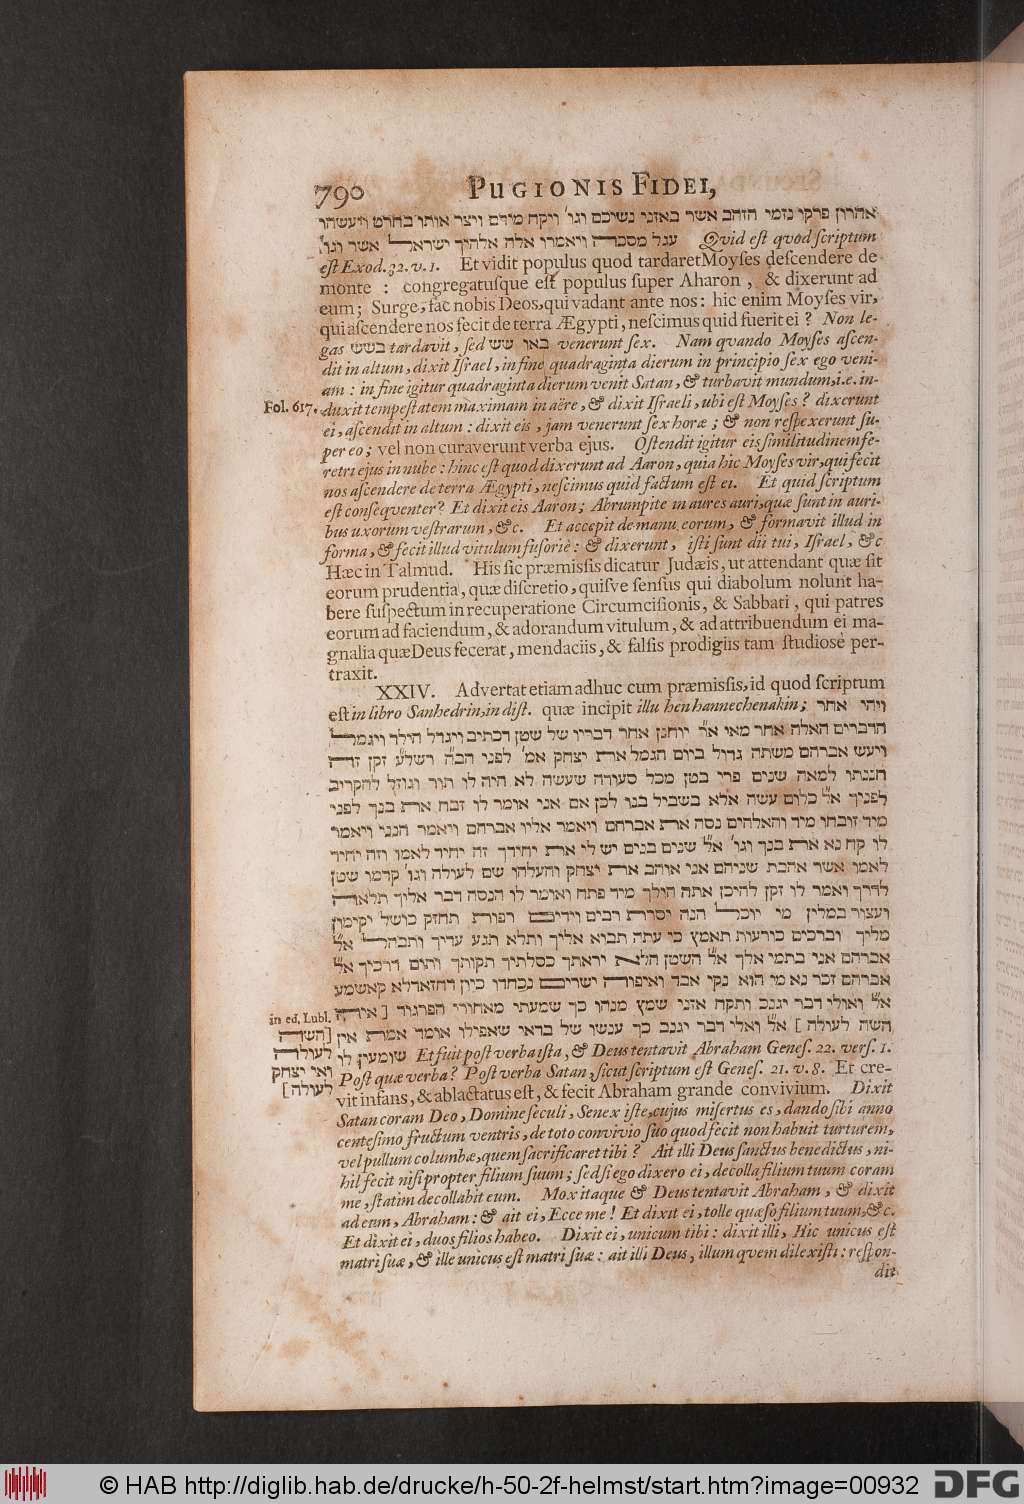 790
PUGIONIS FIDEI,
אהרון פרקו נזמי הזהב אשר באזני נשיכם וגו' ויקח מידם ויצר אותו בחרט ויעשהו
עגל מסכה ויאמרו אלה אלהיך ישראל אשר וגו' Qvid est qvod scriptum
est Exod. 32. v. 1. Et vidit populus quod tardaret Moyses descendere de
monte : congregatusque est populus super Aharon, & dixerunt ad
eum; Surge, fac nobis Deos, qui vadant ante nos: hic enim Moyses vir,
qui ascendere nos fecit de terra Ægypti, nescimus quid fuerit ei? Non le-
gas בשש tardavit, sed באו שש venerunt sex. Nam qvando Moyses ascen-
dit in altum, dixit Israel, in fine quadraginta dierum in principio sex ego veni-
am : in fine igitur quadraginta dierum venit Satan, & turbavit mundum, i.e. in-
Fol. 617.
duxit tempestatem maximam in aëre, & dixit Israeli, ubi est Moyses? dixerunt
ei, ascendit in altum : dixit eis, jam venerunt sex horæ; & non respexerunt su-
per eo; vel non curaverunt verba ejus. Ostendit igitur eis similitudinem fe-
retri ejus in nube : hinc est quod dixerunt ad Aaron, quia hic Moyses vir, qui fecit
nos ascendere de terra Ægypti, nescimus quid factum est ei. Et quid scriptum
est conseqventer? Et dixit eis Aaron; Abrumpite in aures auri, quæ sunt in auri-
bus uxorum vestrarum, &c. Et accepit de manu eorum, & formavit illud in
forma, & fecit illud vitulum fusoriè: & dixerunt, isti sunt dii tui, Israel, &c
Hæc in Talmud. His sic præmissis dicatur Judæis, ut attendant quæ sit
eorum prudentia, quæ discretio, quisve sensus qui diabolum nolunt ha-
bere suspectum in recuperatione Circumcisionis, & Sabbati, qui patres
eorum ad faciendum, & adorandum vitulum, & ad attribuendum ei ma-
gnalia quæ Deus fecerat, mendaciis, & falsis prodigiis tam studiosè per-
traxit.
XXIV. Advertat etiam adhuc cum præmissis, id quod scriptum
est in libro Sanhedrin, in dist. quæ incipit illu hen hannechenakin; ויהי אחר
הדברים האלה אחר מאי א"ר יוחנן אחר דבריו של שטן דכתיב ויגדל הילד ויגמל
ויעש אברהם משתה גדול ביום הגמל את יצחק אמ' לפני הב"ה רשל"ע זקן זה
חננתו למאה שנים פרי בטן מכל סעודה שעשה לא היה לו תור וגוזל להקריב
לפניך א"ל כלום עשה אלא בשביל בנו לכן אם אני אומר לו זבח את בנך לפני
מיד זובחו מיד והאלהים נסה את אברהם ויאמר אליו אברהם ויאמר הנני ויאמר
לו קח נא את בנך וגו' א"ל שנים בנים יש לי את יחידך זה יחיד לאמו וזה יחיד
לאמו אשר אהבת שניהם אני אוהב את יצחק והעלהו שם לעולה וגו' קדמו שטן
לדרך ואמר לו זקן להיכן אתה הולך מיד פתח ואומר לו הנסה דבר אליך תלאה
ועצור במלין מי יוכל הנה יסרת רבים וידים רפות תחזק כושל יקימון
מליך וברכים כורעות תאמץ כי עתה תבוא אליך ותלא תגע עדיך ותבהל א"ל
אברהם אני בתמי אלך א"ל השטן הלא יראתך כסלתיך תקותך ותום דרכיך א"ל
אברהם זכר נא מי הוא נקי אבד ואיפוה ישרים נכחדו כיון דחזא דלא קאשמע
א"ל ואולי דבר יגנב ותקח אזני שמץ מנהו כך שמעתי מאחורי הפרגוד [ איה
השה לעולה ] א"ל ואלי דבר יגנב כך ענשו של בדאי שאפילו אומר אמת אין
שומעין לו Et fuit post verba ista, & Deus tentavit Abraham Genes. 22. vers. 1.
in ed. Lubl.
[השה
לעולה
ואי יצחק
לעולה]
Post quæ verba? Post verba Satan, sicut scriptum est Genes. 21. v. 8. Et cre-
vit infans, & ablactatus est, & fecit Abraham grande convivium. Dixit
Satan coram Deo, Domine seculi, Senex iste, cujus misertus es, dando sibi anno
centesimo fructum ventris, de toto convivio suo quod fecit non habuit turturem,
vel pullum columbæ, quem sacrificaret tibi? Ait illi Deus sanctus benedictus, ni-
hil fecit nisi propter filium suum; sed si ego dixero ei, decolla filium tuum coram
me, statim decollabit eum. Mox itaque & Deus tentavit Abraham, & dixit
ad eum, Abraham: & ait ei, Ecce me! Et dixit ei, tolle quæso filium tuum, &c.
Et dixit ei, duos filios habeo. Dixit ei, unicum tibi: dixit illi, Hic unicus est
matri suæ, & ille unicus est matri suæ: ait illi Deus, illum qvem dilexisti: respon-
dit
© HAB http://diglib.hab.de/drucke/h-50-2f-helmst/start.htm?image=00932
DFG